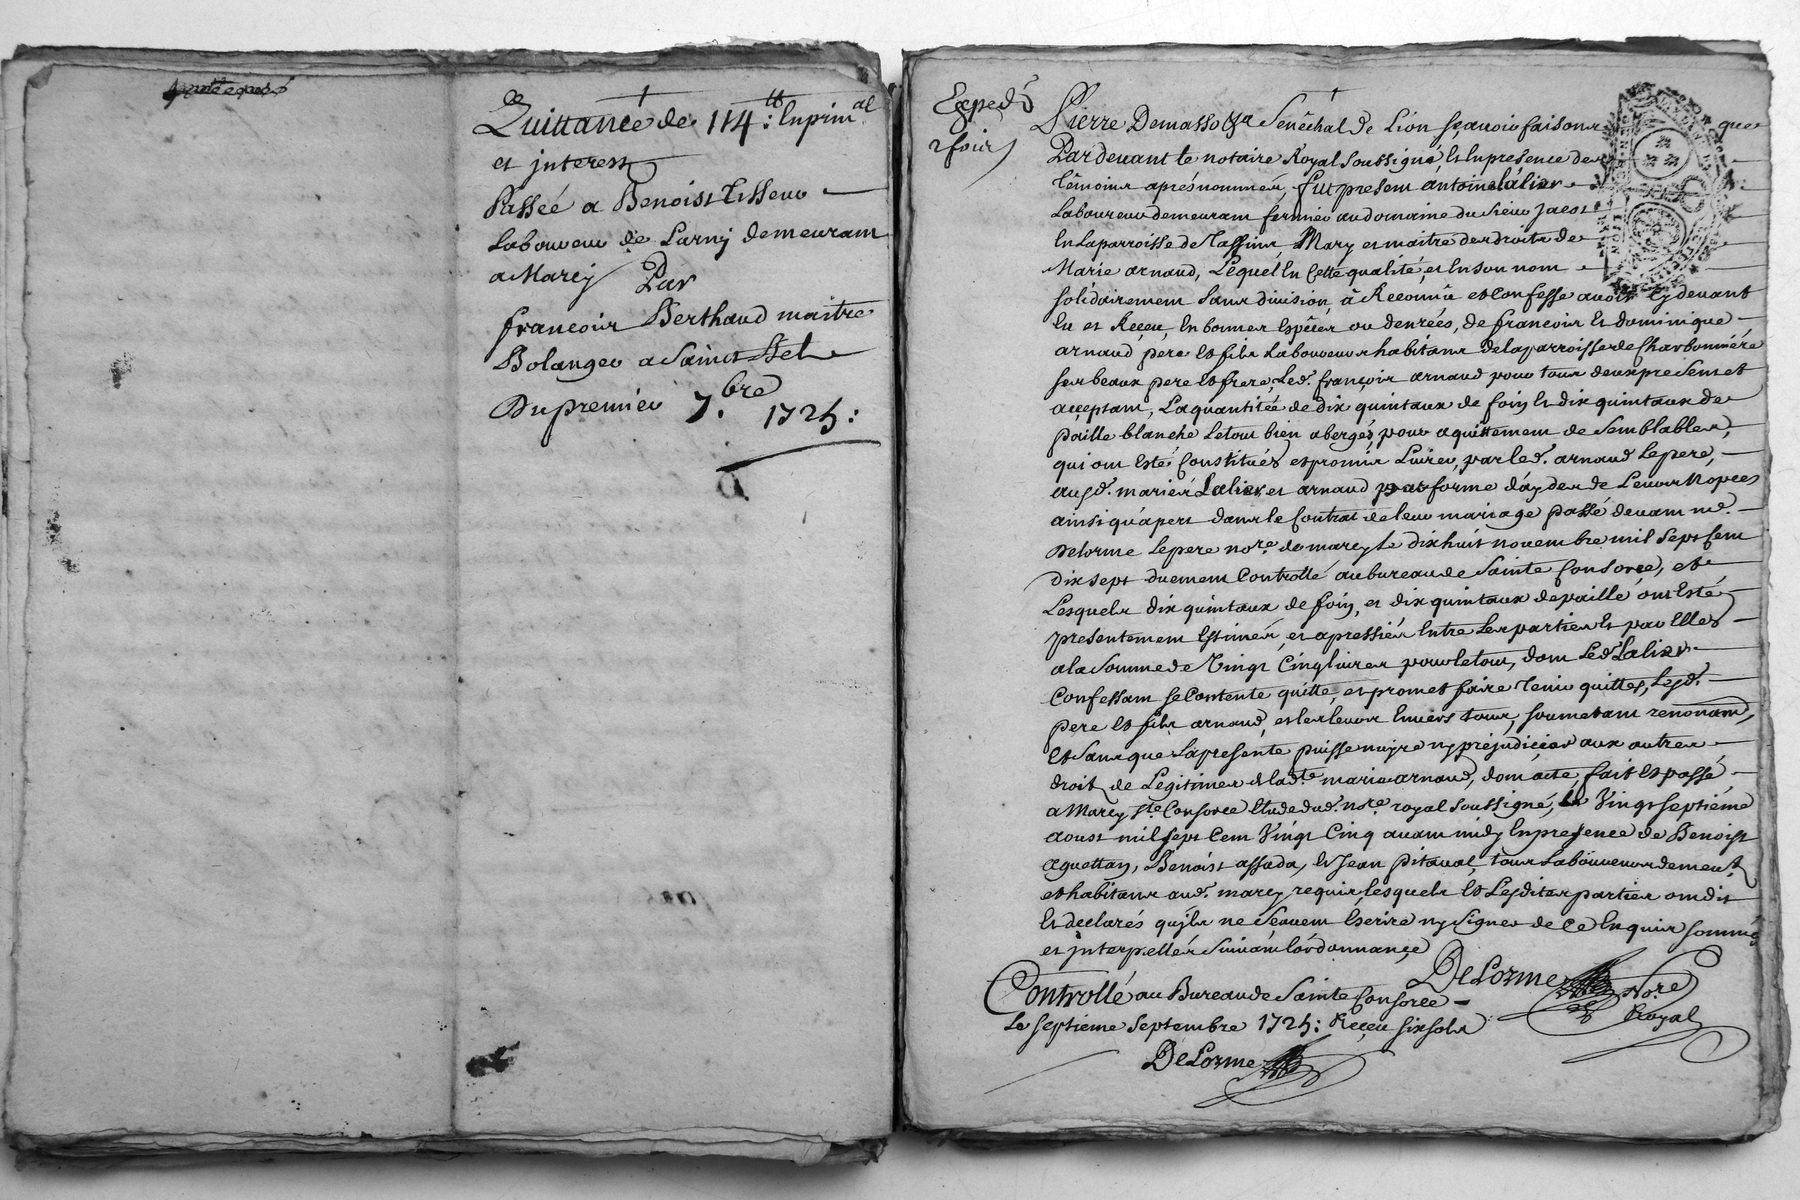 Quittance de 114 lt: En prin.al
et jnterest
Passée a Benoist tisseur
Laboureur de Larny demeurant
a Marcy Par
francois Berthaud maitre
Bolanger a Sainct Bel
Du premier 7.bre 1725:
Expedé
2 fois
Pierre Demasso Sénéchal de Lion sçavoir faisons que
Pardevant le notaire Royal soussigné, et En presence des
témoins aprés nommés, fut present antoine Lalier
Laboureur demeurant fermier au domaine du Sieur Jacos
En la parroisse de Tassins, Mary et maitre des droits de
Marie arnaud, Lequel En cette qualité, et En son nom
solidairement sans division, â Reconnu et Confesse avoir Cy devant
Eu et Reçeu, En bonnes Espêces ou denrées, de francois Et dominique
arnaud pere Et fils Laboureurs habitans de la parroisse de Charbonniére
ses beaux pere Et frere, Led. françois arnaud pour tous deux present et
acçeptant, La quantitée de dix quintaux de foin Et dix quintaux de
paille blanche Le tout bien abergés, pour aquittement de semblables,
qui ont Esté Constitués et promis Livrer, par led. arnaud Le pere,
ausd. mariés Lalier et arnaud par forme d'ayde de Leurs Nopces
ainsi qu'apert dans le Contrat de leur mariage passé devant me.
Delorme Le pere no.re de marcy Le dix huit novembre mil Sept Cent
dix sept duement Controllé au bureau de Sainte Consorce, et
Lesquels dix quintaux de foin, et dix quintaux de paille ont Esté
presentement Estimés, et apressiés Entre Les parties Et par Elles
a la Somme de Vingt Cinq livres pour le tout, dont Led. Lalier
Confessant se Contente, quitte, et promet faire tenir quittes, Lesd.
pere Et fils arnaud, et les leurs Envers tous, soumetant renonçant,
Et Sans que La presente puisse nuire ny préjudicier aux autres
droits de Légitimes de lad.te marie arnaud, dont acte, fait Et passé
a Marcy S.te Consorce Etude dud. no.re royal soussigné, Le Vingt septiéme
aoust mil sept Cent Vingt Cinq avant midy En presence de Benoist
aguettan, Benoist assada, Et Jean pitaval, tous Laboureurs demeu.t
et habitans aud. marcy requis, Lesquels Et Lesdites parties ont dit
Et declarés qu'jls ne sçavent Escrire ny signer de ce Enquis sommés
et jnterpellés suivant l'ordonnançe
DeLorme No.re
Royal
Controllé au Bureau de Sainte Consorce
Le septieme Septembre 1725: Reçeu six sols
DeLorme